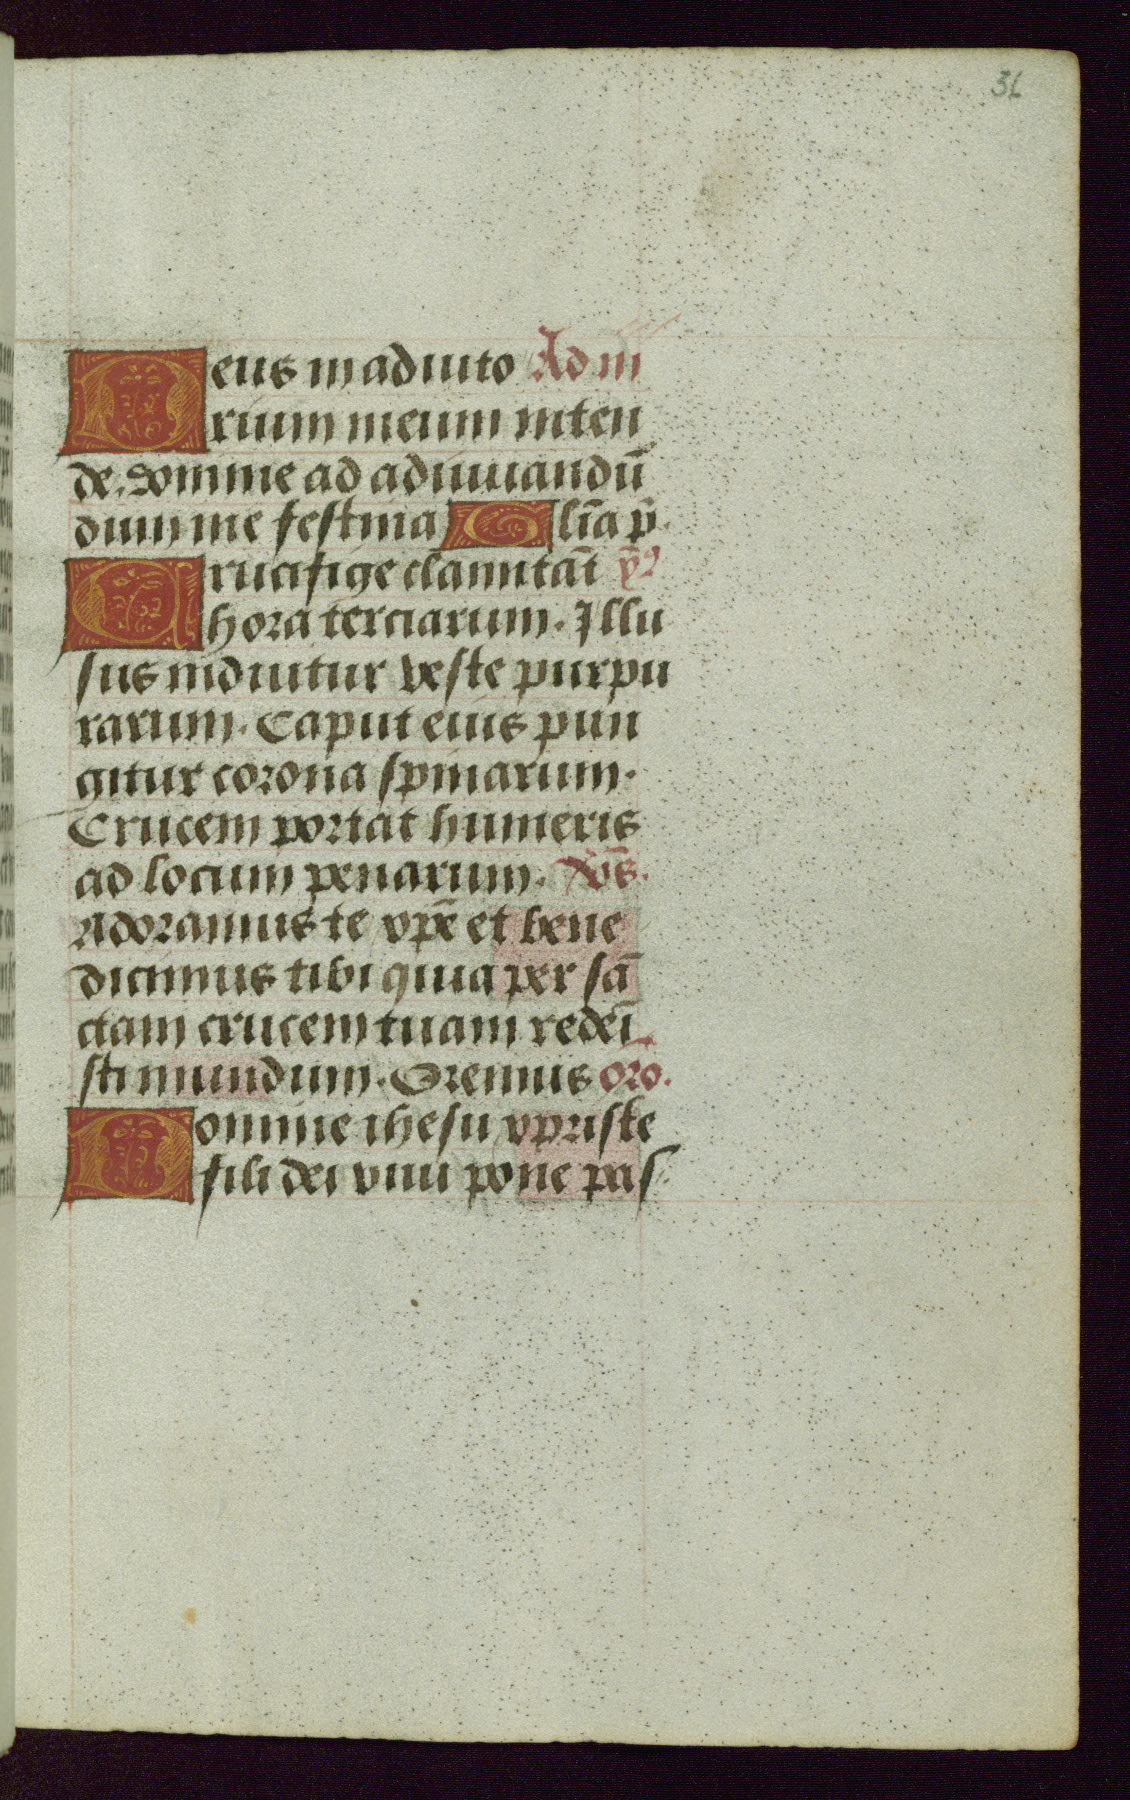 31
Deus in adiuto Ad iii
rium meum inten
de. Domine ad adiuuandū
dum me festina Glīa p̄.
Crucifige clamitāt ẏ⁹
hora terciarum. Illu
sus induitur veste purpu
rarum. Caput eius pun
gitur corona spinarum.
Crucem portat humeris
ad locum penarum. v̄s.
Adoramus te xp̄e et bene
dicimus tibi quia per sā
ctam crucem tuam redemi
sti mundum. Oremus oro.
Domine ihesu xpriste
fili dei viui pone pas